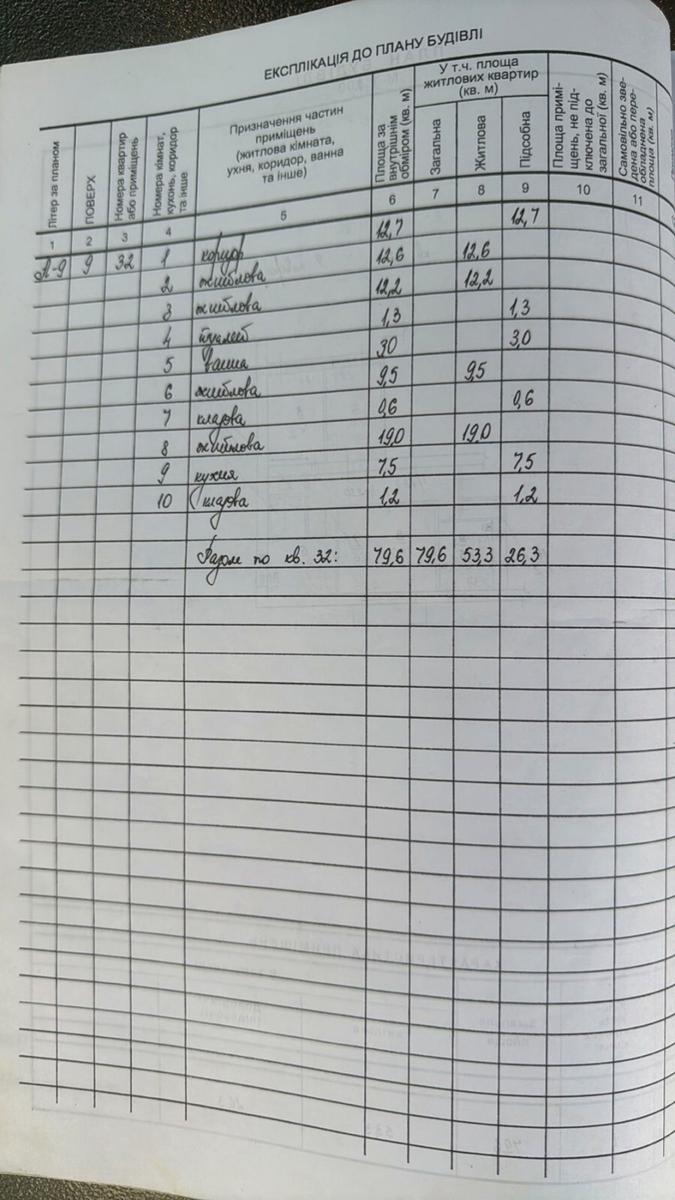 ЕКСПЛІКАЦІЯ ДО ПЛАНУ БУДІВЛІ
Літер за планом
ПОВЕРХ
Номера квартир або приміщень
Номера кімнат, кухонь, коридор та інше
Призначення частин
приміщень
(житлова кімната,
ухня, коридор, ванна
та інше)
Площа за внутрішнім обміром (кв. м)
У т.ч. площа
житлових квартир
(кв. м)
Загальна
Житлова
Підсобна
Площа примі-
щень, не під-
ключена до
загальної (кв. м)
Самовільно зве-
дена або пере-
обладнана
площа (кв. м)
1 2 3 4 5 6 7 8 9 10 11
А-9 9 32 1 коридор 12,7 12,7
2 житлова 12,6 12,6
3 житлова 12,2 12,2
4 туалет 1,3 1,3
5 ванна 30 3,0
6 житлова 9,5 9,5
7 кладова 0,6 0,6
8 житлова 19,0 19,0
9 кухня 7,5 7,5
10 кладова 1,2 1,2
Разом по кв. 32: 79,6 79,6 53,3 26,3